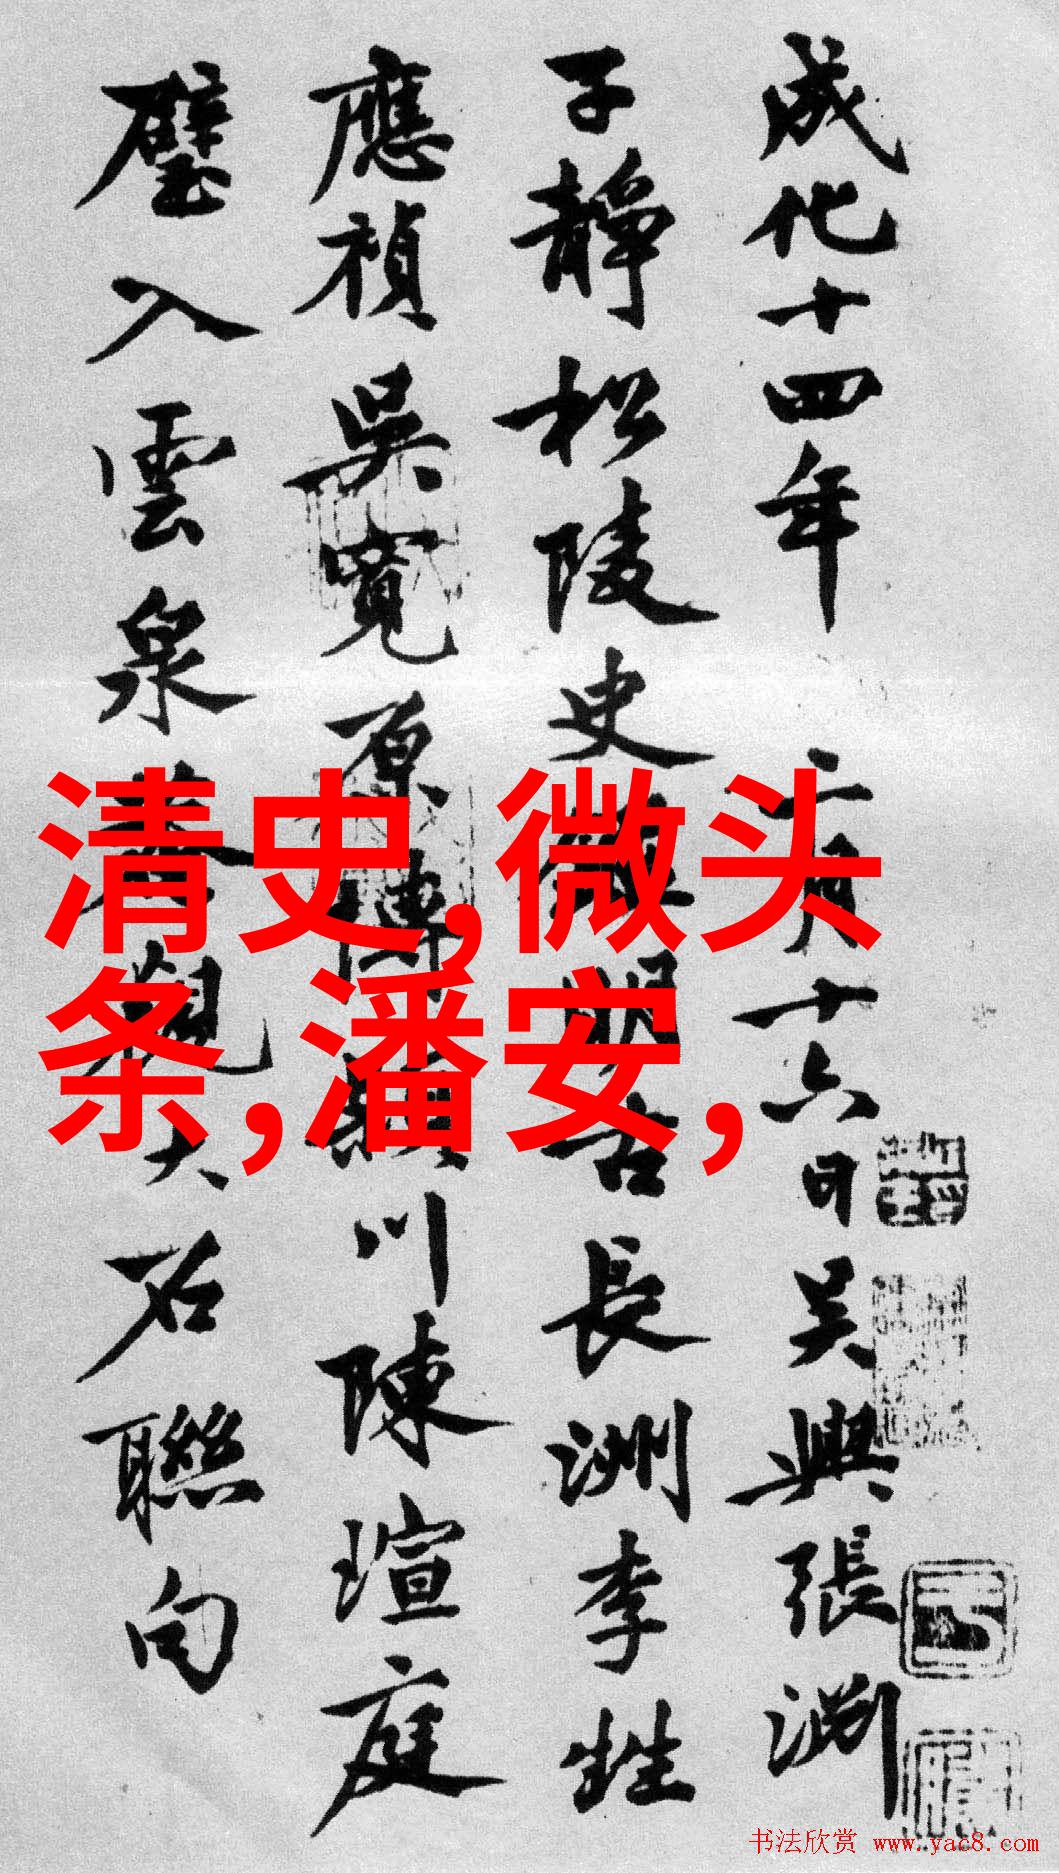 成化十四年二月十六日吳興張淵
子靜松陵史明古長洲李甡
應禎吳寬原博潁川陳瑄庭
璧入雲泉菴觀大石聯句
清史,微头
条,潘安,
书法欣赏 www.yac8.com